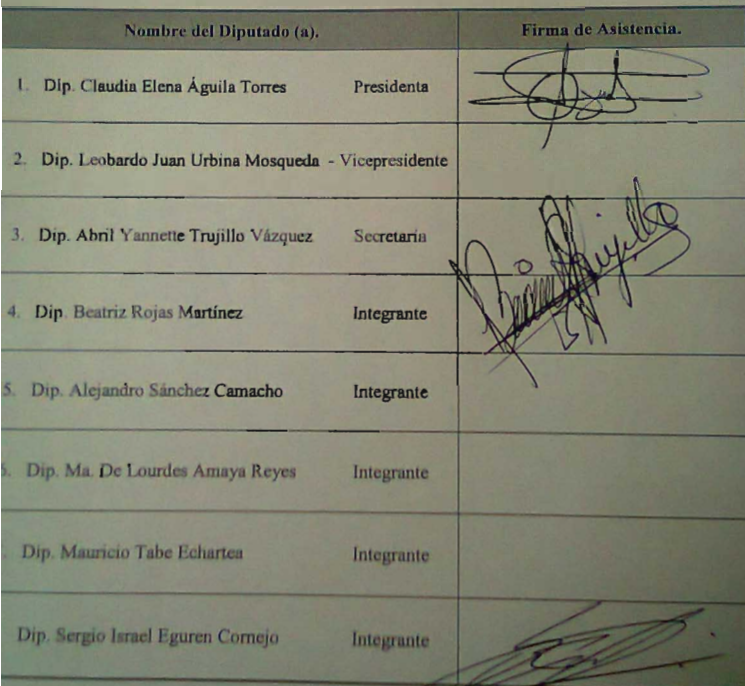 Nombre del Diputado (a). Firma de Asistencia.
1. Dip. Claudia Elena Águila Torres Presidenta
2. Dip. Leobardo Juan Urbina Mosqueda - Vicepresidente
3. Dip. Abril Yannette Trujillo Vázquez Secretaria
4. Dip. Beatriz Rojas Martínez Integrante
5. Dip. Alejandro Sánchez Camacho Integrante
Dip. Ma. De Lourdes Amaya Reyes Integrante
Dip. Mauricio Tabe Echartea Integrante
Dip. Sergio Israel Eguren Cornejo Integrante